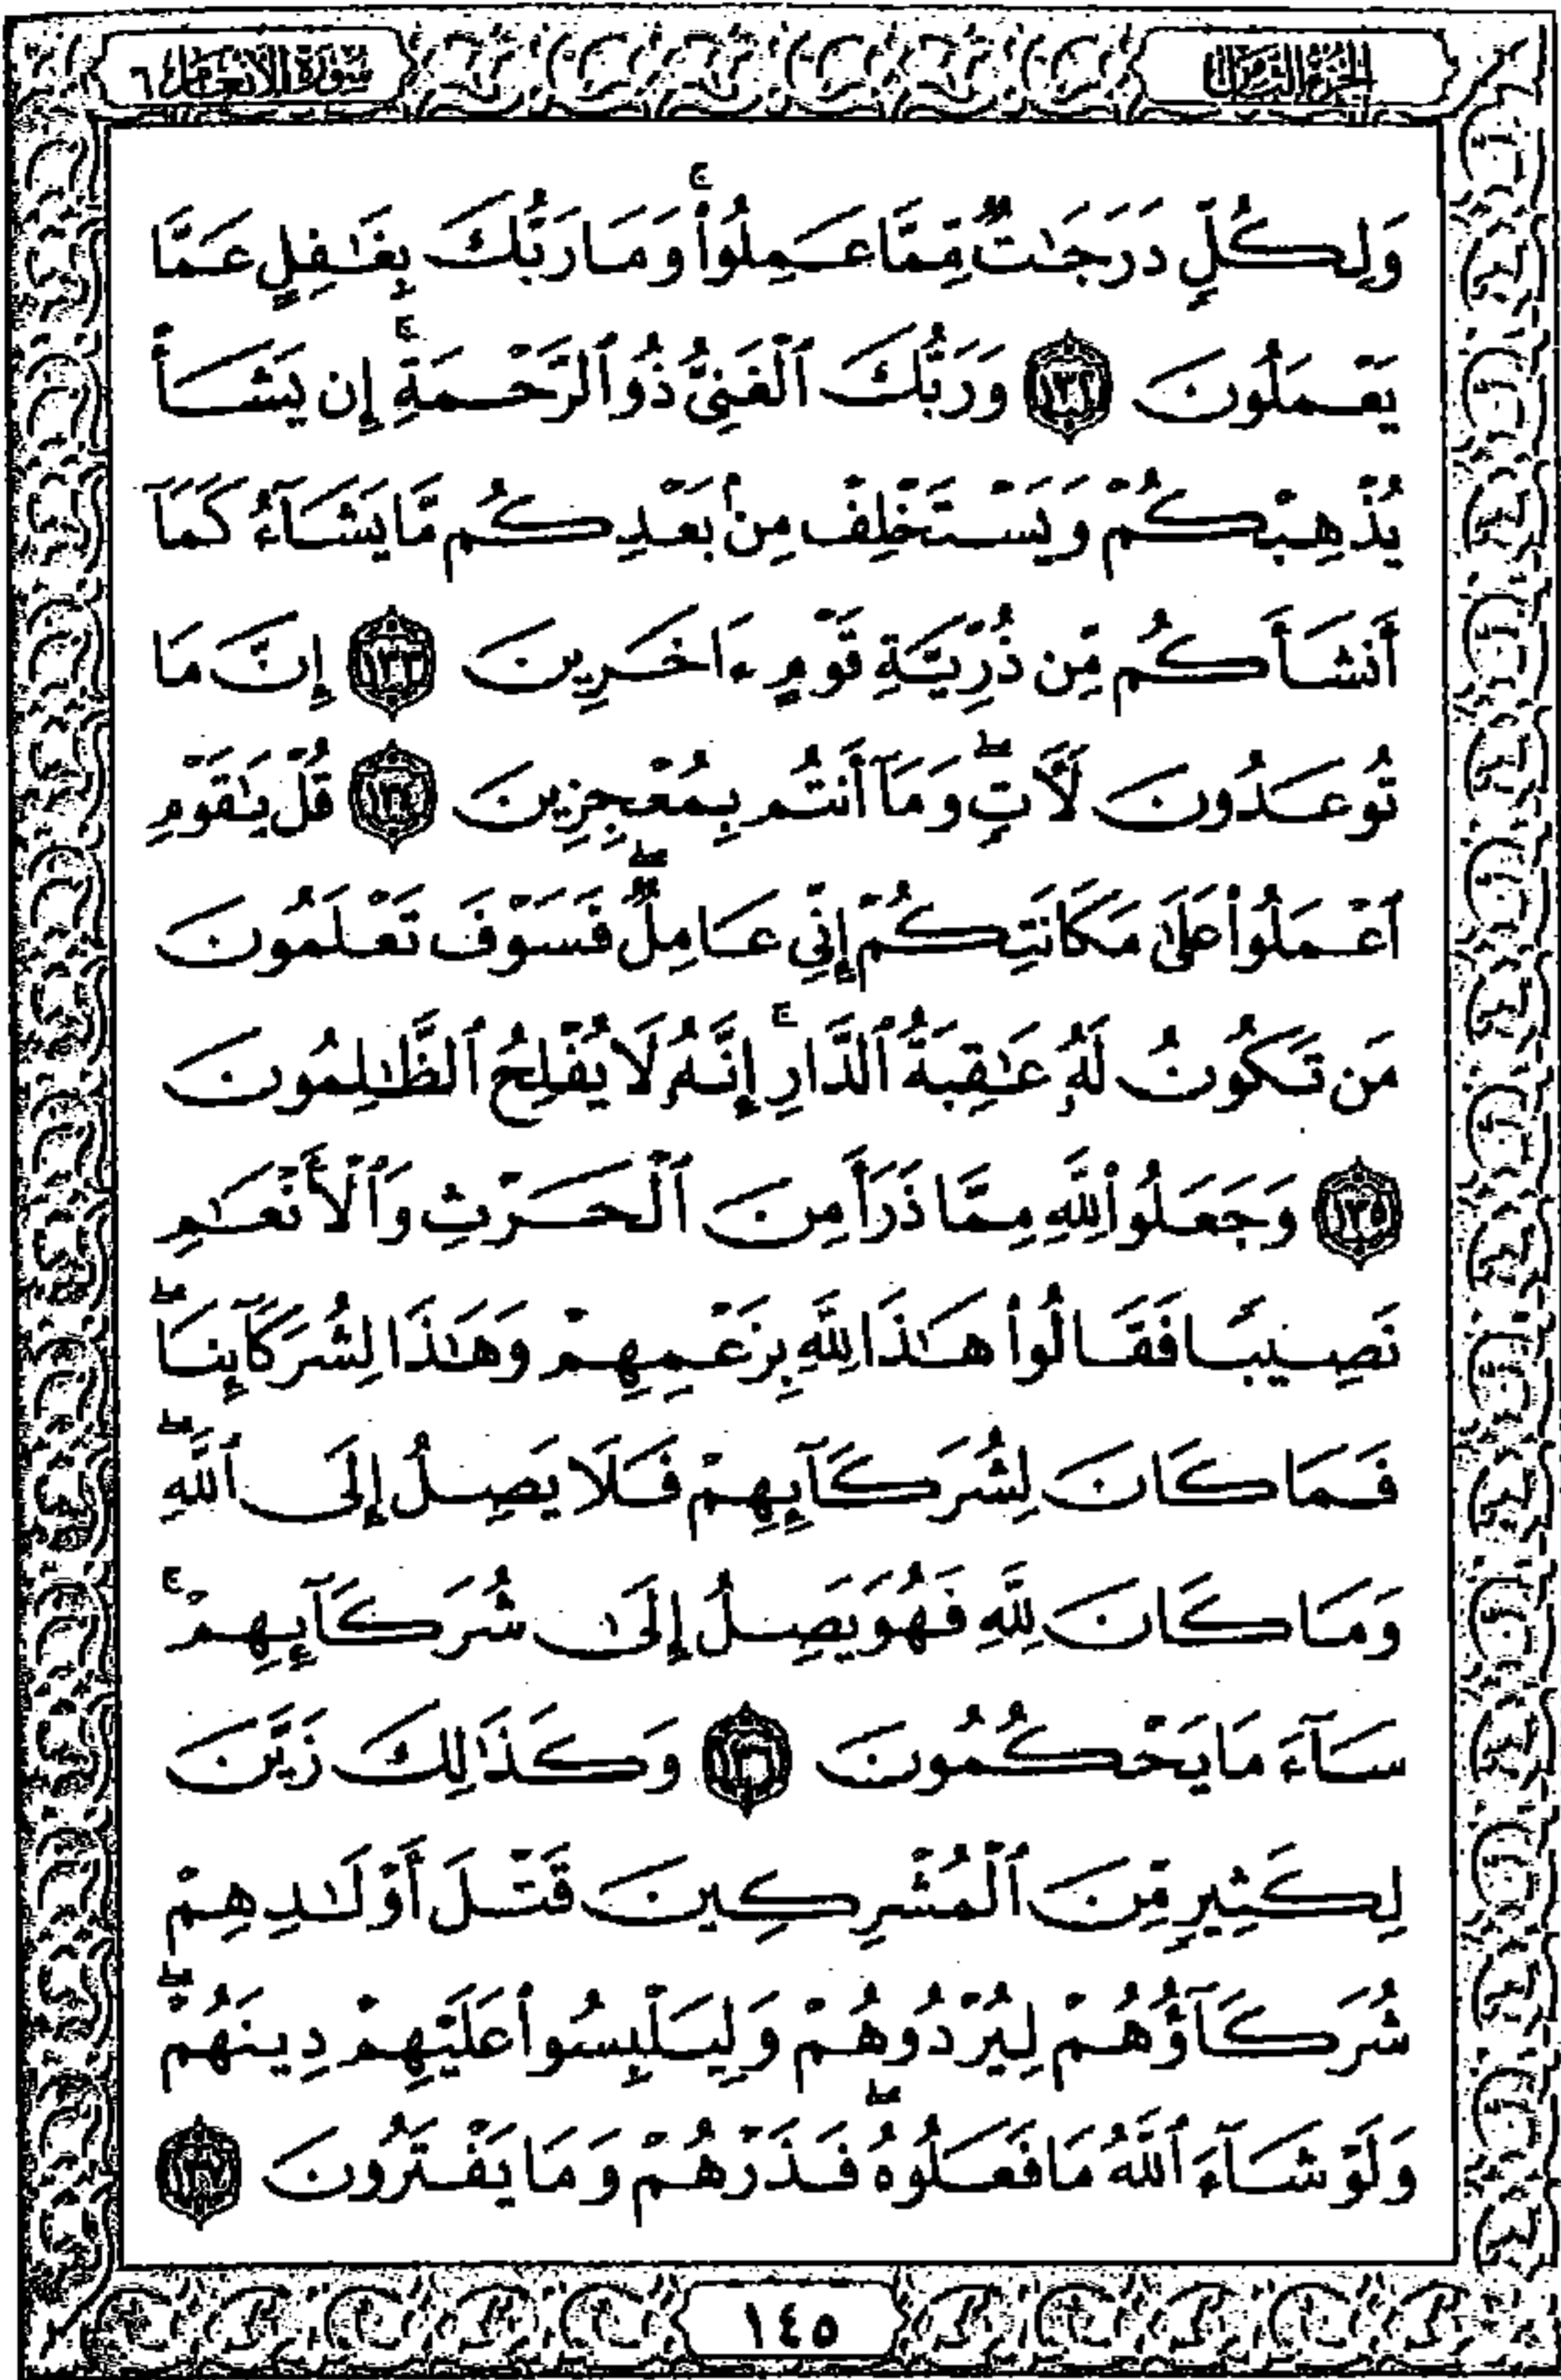 الجزء الثامن
سورة الأنعام ٦
وَلِكُلٍّ دَرَجَٰتٌ مِّمَّا عَمِلُوا۟ ۚ وَمَا رَبُّكَ بِغَٰفِلٍ عَمَّا
يَعْمَلُونَ ١٣٢ وَرَبُّكَ ٱلْغَنِىُّ ذُو ٱلرَّحْمَةِ ۚ إِن يَشَأْ
يُذْهِبْكُمْ وَيَسْتَخْلِفْ مِنۢ بَعْدِكُم مَّا يَشَآءُ كَمَآ
أَنشَأَكُم مِّن ذُرِّيَّةِ قَوْمٍ ءَاخَرِينَ ١٣٣ إِنَّ مَا
تُوعَدُونَ لَـَٔاتٍ ۖ وَمَآ أَنتُم بِمُعْجِزِينَ ١٣٤ قُلْ يَٰقَوْمِ
ٱعْمَلُوا۟ عَلَىٰ مَكَانَتِكُمْ إِنِّى عَامِلٌ ۖ فَسَوْفَ تَعْلَمُونَ
مَن تَكُونُ لَهُۥ عَٰقِبَةُ ٱلدَّارِ ۚ إِنَّهُۥ لَا يُفْلِحُ ٱلظَّٰلِمُونَ
١٣٥ وَجَعَلُوا۟ لِلَّهِ مِمَّا ذَرَأَ مِنَ ٱلْحَرْثِ وَٱلْأَنْعَٰمِ
نَصِيبًا فَقَالُوا۟ هَٰذَا لِلَّهِ بِزَعْمِهِمْ وَهَٰذَا لِشُرَكَآئِنَا ۖ
فَمَا كَانَ لِشُرَكَآئِهِمْ فَلَا يَصِلُ إِلَى ٱللَّهِ ۖ
وَمَا كَانَ لِلَّهِ فَهُوَ يَصِلُ إِلَىٰ شُرَكَآئِهِمْ ۗ
سَآءَ مَا يَحْكُمُونَ ١٣٦ وَكَذَٰلِكَ زَيَّنَ
لِكَثِيرٍ مِّنَ ٱلْمُشْرِكِينَ قَتْلَ أَوْلَٰدِهِمْ
شُرَكَآؤُهُمْ لِيُرْدُوهُمْ وَلِيَلْبِسُوا۟ عَلَيْهِمْ دِينَهُمْ ۖ
وَلَوْ شَآءَ ٱللَّهُ مَا فَعَلُوهُ ۖ فَذَرْهُمْ وَمَا يَفْتَرُونَ ١٣٧
١٤٥